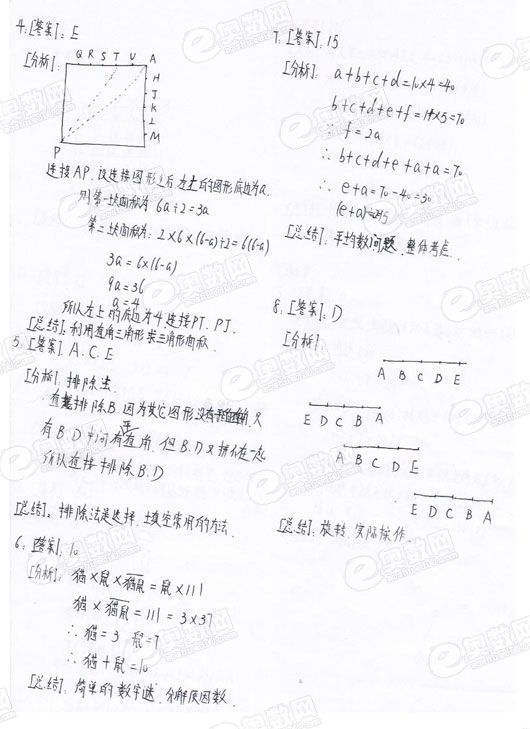 4.[答案]:E
[分析]:
Q R S T U A
H
J
K
L
M
P
连接AP.设连接图形之后左上的图形底边为a.
则第一块面积为 6a÷2=3a
第二块面积为:2×6×(6-a)÷2=6(6-a)
3a=6×(6-a)
9a=36
a=4
所以左上的底边为4.连接PT.PJ.
[总结]:利用直角三角形求三角形面积.
5.[答案]A.C.E
[分析]:排除法
排除B.因为其它图形没有 只
有B.D中间有直角,但B.D又拼不在一起
所以直接排除B.D
[总结]。排除法是选择.填空常用的方法.
6:[答案]:10
[分析]:猫×鼠×猫鼠=鼠×111
猫×猫鼠=111=3×37
∴猫=3 鼠=7
∴猫+鼠=10
[总结]:简单的数字谜.分解质因数.
7.[答案]:15
[分析]:a+b+c+d=10×4=40
b+c+d+e+f=14×5=70
∵f=2a
∴b+c+d+e+a+a=70
∴e+a=70-40=30
(e+a)÷2=15
[总结]:平均数问题.整体考点.
8:[答案]:D
[分析]
A B C D E
E D C B A
A B C D E
E D C B A
[总结]:旋转.实际操作.
e奥数网